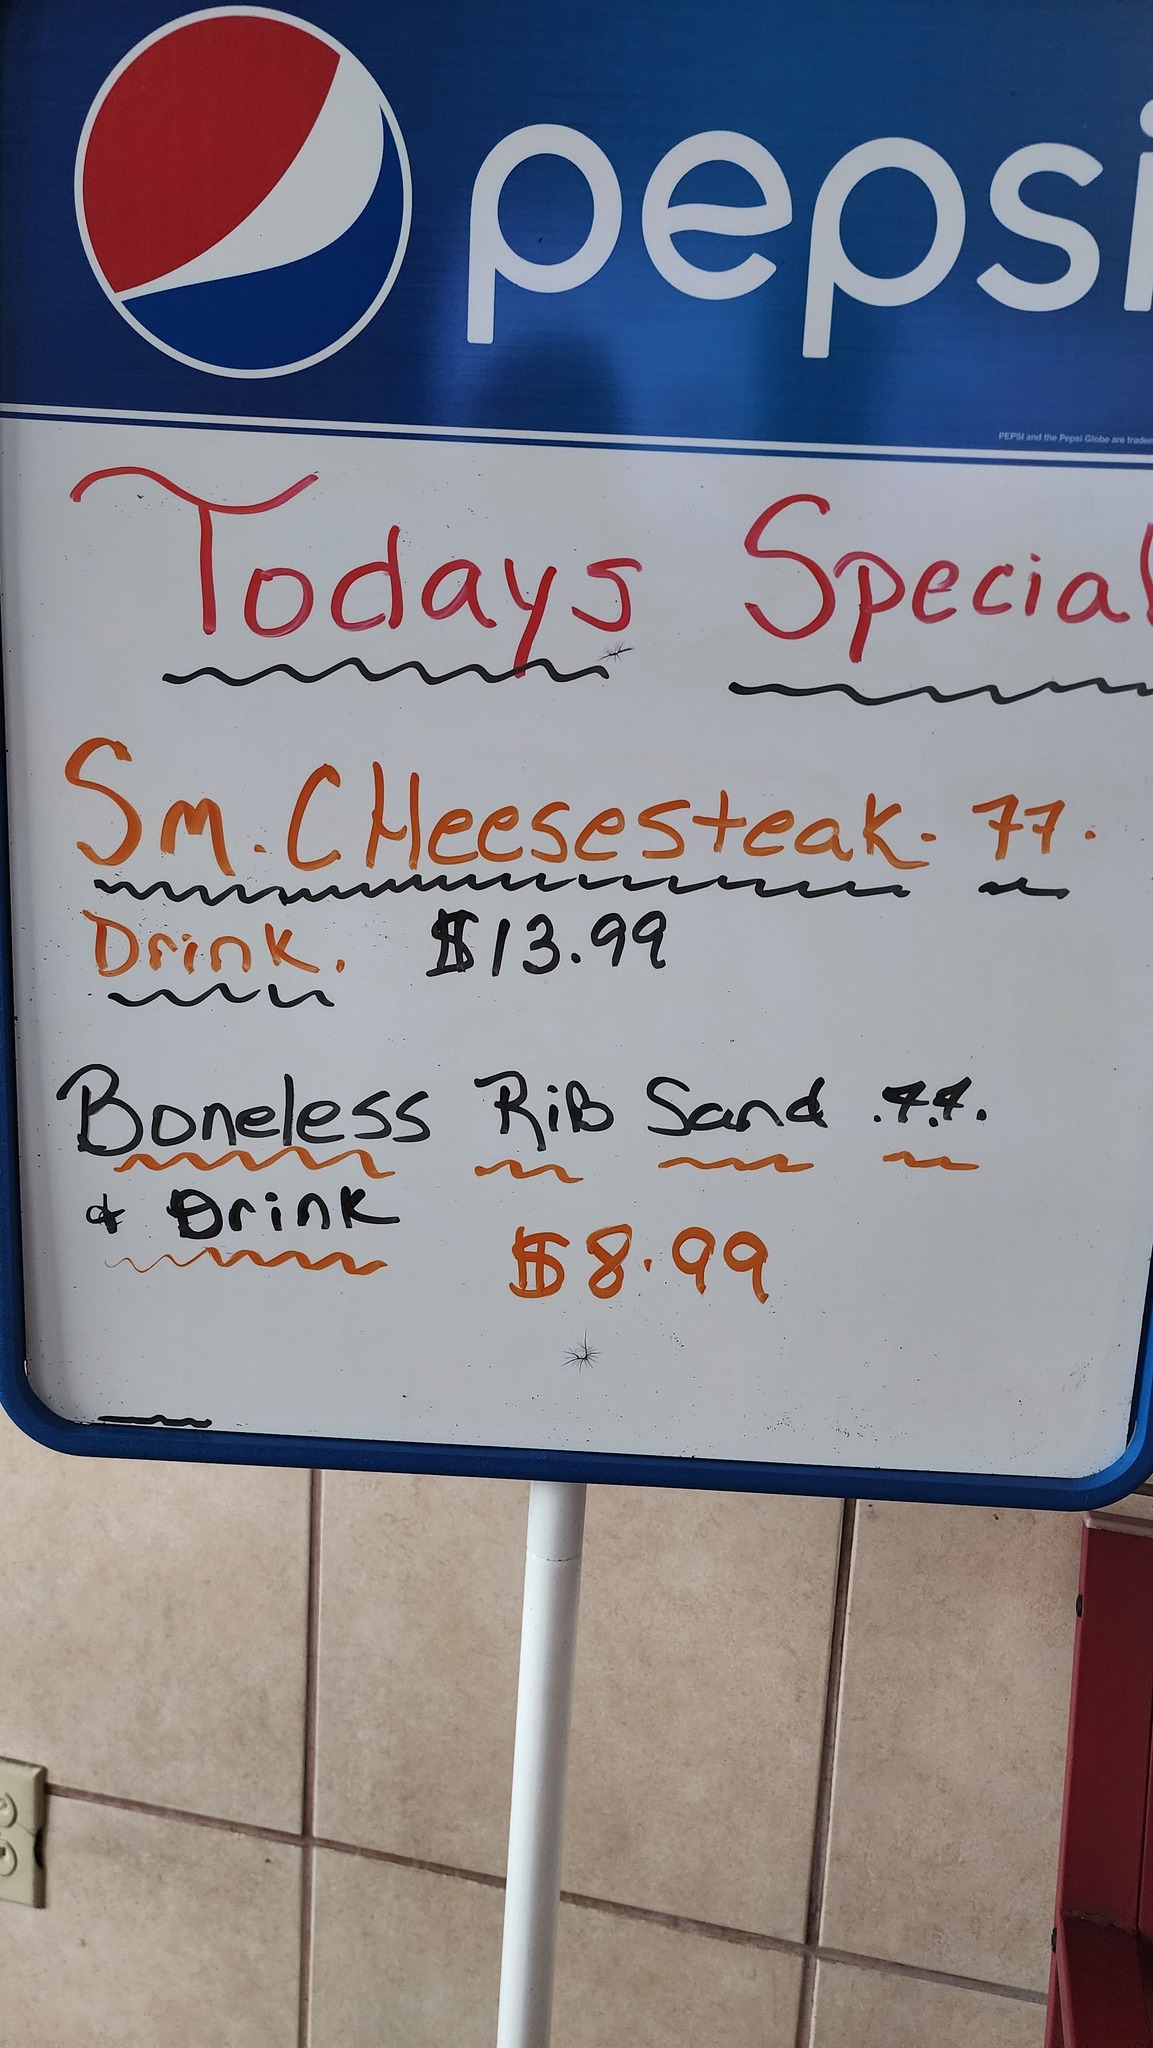 pepsi
PEPSI and the Pepsi Globe are tradem
Todays Special
Sm. CHeesesteak. 77.
Drink. $13.99
Boneless RiB Sand .77.
& Drink
$8.99